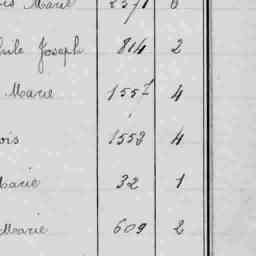 Marie 2571 6
Joseph 814 2
Marie 1557 4
1553 4
Marie 32 1
Marie 609 2